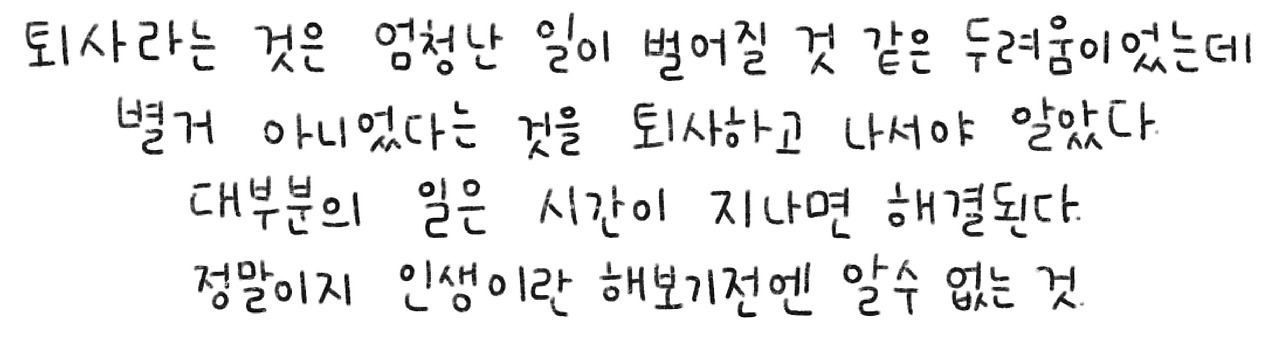 퇴사라는 것은 엄청난 일이 벌어질 것 같은 두려움이었는데
별거 아니었다는 것을 퇴사하고 나서야 알았다.
대부분의 일은 시간이 지나면 해결된다.
정말이지 인생이란 해보기전엔 알수 없는 것.